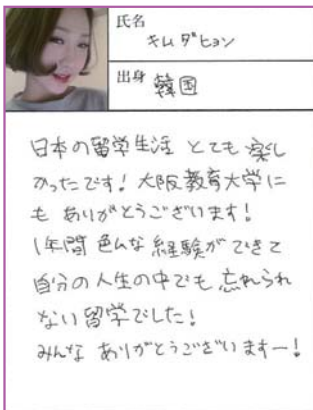 氏名
キム ダヒョン
出身
韓国
日本の留学生活 とても 楽し
かったです! 大阪教育大学に
も ありがとうございます!
1年間 色んな 経験が できて
自分の人生の中でも 忘れられ
ない 留学でした!
みんな ありがとうございますー!